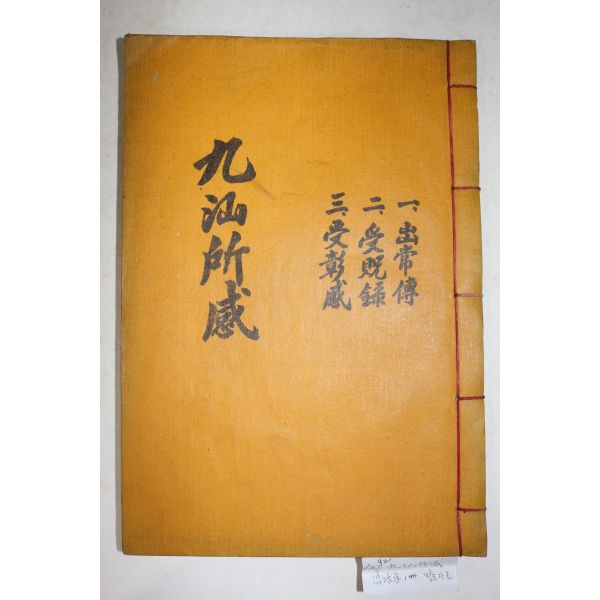 一、出常傳
二、受貺錄
三、受彰感
九汕所感